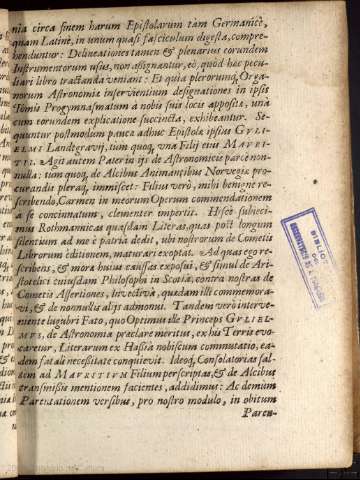 nia circa finem harum Epistolarum tàm Germanicè,
quàm Latinè, in unum quasi fasciculum digesta, compre-
henduntur: Delineationes tamen & plenarius eorundem
Instrumentorum usus, non assignantur, eò, quòd hæc pecu-
liari libro tractanda veniant: Et quia plerorumq; Orga-
norum Astronomiæ inservientium designationes in ipsis
Tomis Progymnasmatum à nobis suis locis apposita, unà
cum eorundem explicatione succincta, exhibeantur. Se-
quuntur postmodum pauca adhuc Epistolæ ipsius GVLI-
ELMI Landtgravij, tùm quoq, una Filij eius MAVRI-
TII. Agit autem Pater in ijs de Astronomicis parcè non-
nulla: tùm quoq, de Alcibus Animantibus Norvegis pro-
curandis pleraq; immiscet: Filius verò, mihi benignè re-
scribendo, Carmen in meorum Operum commendationem
à se concinnatum, clementer impertit. Hisce subjeci-
mus Rothmannicas quasdam Literas, quas post longum
silentium ad me è patria dedit, ubi nostrorum de Cometis
Librorum editionem, maturari exoptat. Ad quas ego re-
scribens, & moræ huius caussas exposui, & simul de Ari-
stotelici cuiusdam Philosophi in Scotia, contra nostras de
Cometis Assertiones, invectiva, quædam illi commemora-
vi, & de nonnullis alijs admonui. Tandem verò interve-
niente lugubri Fato, quo Optimus ille Princeps GVLIEL-
MVS, de Astronomia præclarè meritus, ex his Terris evo-
caretur, Literarum ex Hassia nobiscum commutatio, ea-
dem fatali necessitate conquievit. Ideoq, Consolatorias sal-
tem ad MAVRITIVM Filium perscriptas, & de Alcibus
transmissis mentionem facientes, addidimus: Ac demum
Parentationem versibus, pro nostro modulo, in obitum
Paren-
BIBLIO